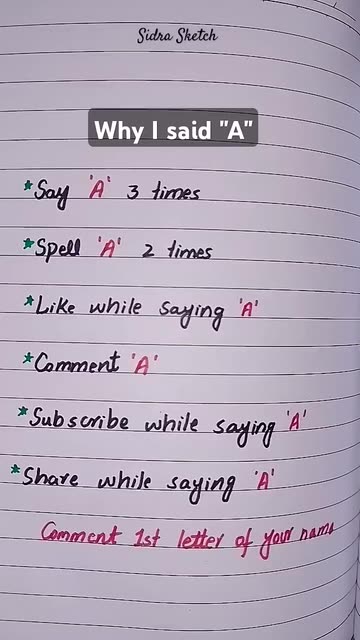 Sidra Sketch
Why I said "A"
*Say 'A' 3 times
*Spell 'A' 2 times
*Like while saying 'A'
*Comment 'A'
*Subscribe while saying 'A'
*Share while saying 'A'
Comment 1st letter of your name